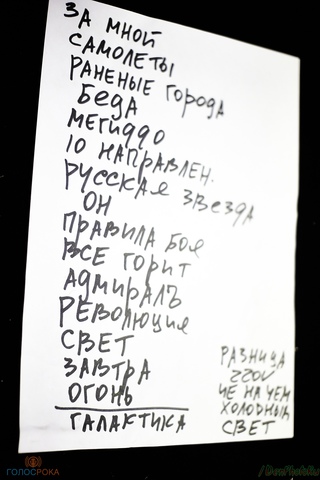 ЗА МНОЙ
САМОЛЕТЫ
РАНЕНЫЕ ГОРОДА
БЕДА
МЕГИДДО
10 НАПРАВЛЕН.
РУССКАЯ ЗВЕЗДА
ОН
ПРАВИЛА БОЯ
ВСЕ ГОРИТ
АДМИРАЛЪ
РЕВОЛЮЦИЯ
СВЕТ
ЗАВТРА
ОГОНЬ
ГАЛАКТИКА
РАЗНИЦА
220V
НЕ НА ЧЕМ
ХОЛОДНЫЙ
СВЕТ
ГОЛОСРОКА